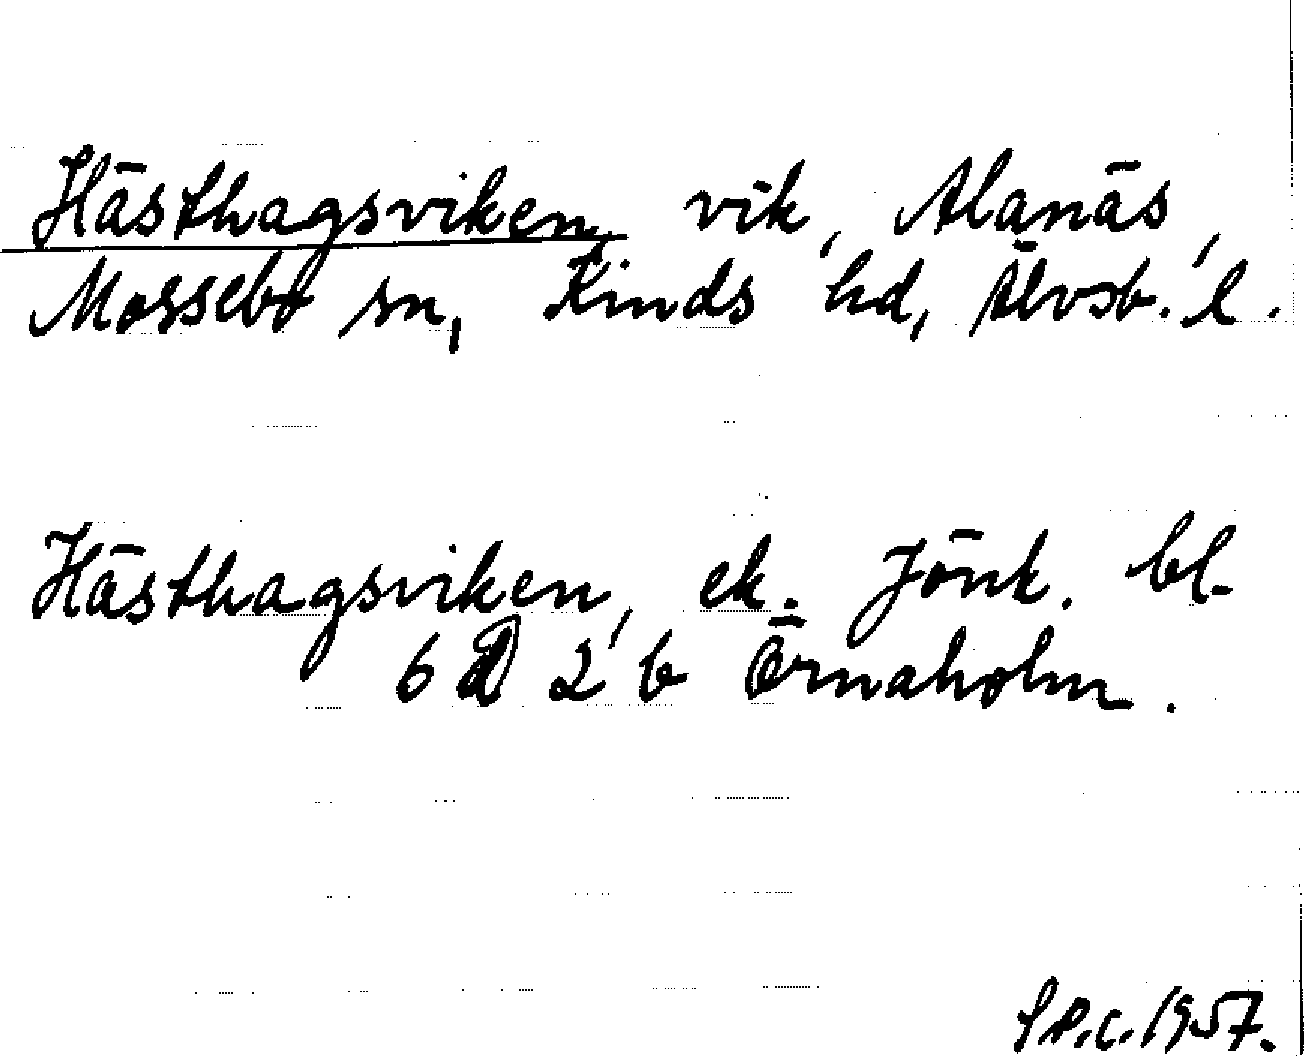 Hästhagsviken, vik, Alanäs,
Mossebo sn, Kinds hd, Älvsb. l.
Hästhagsviken, ek. Jönk. bl.
6 D 2 b Örnaholm.
S.P.C. 1957.